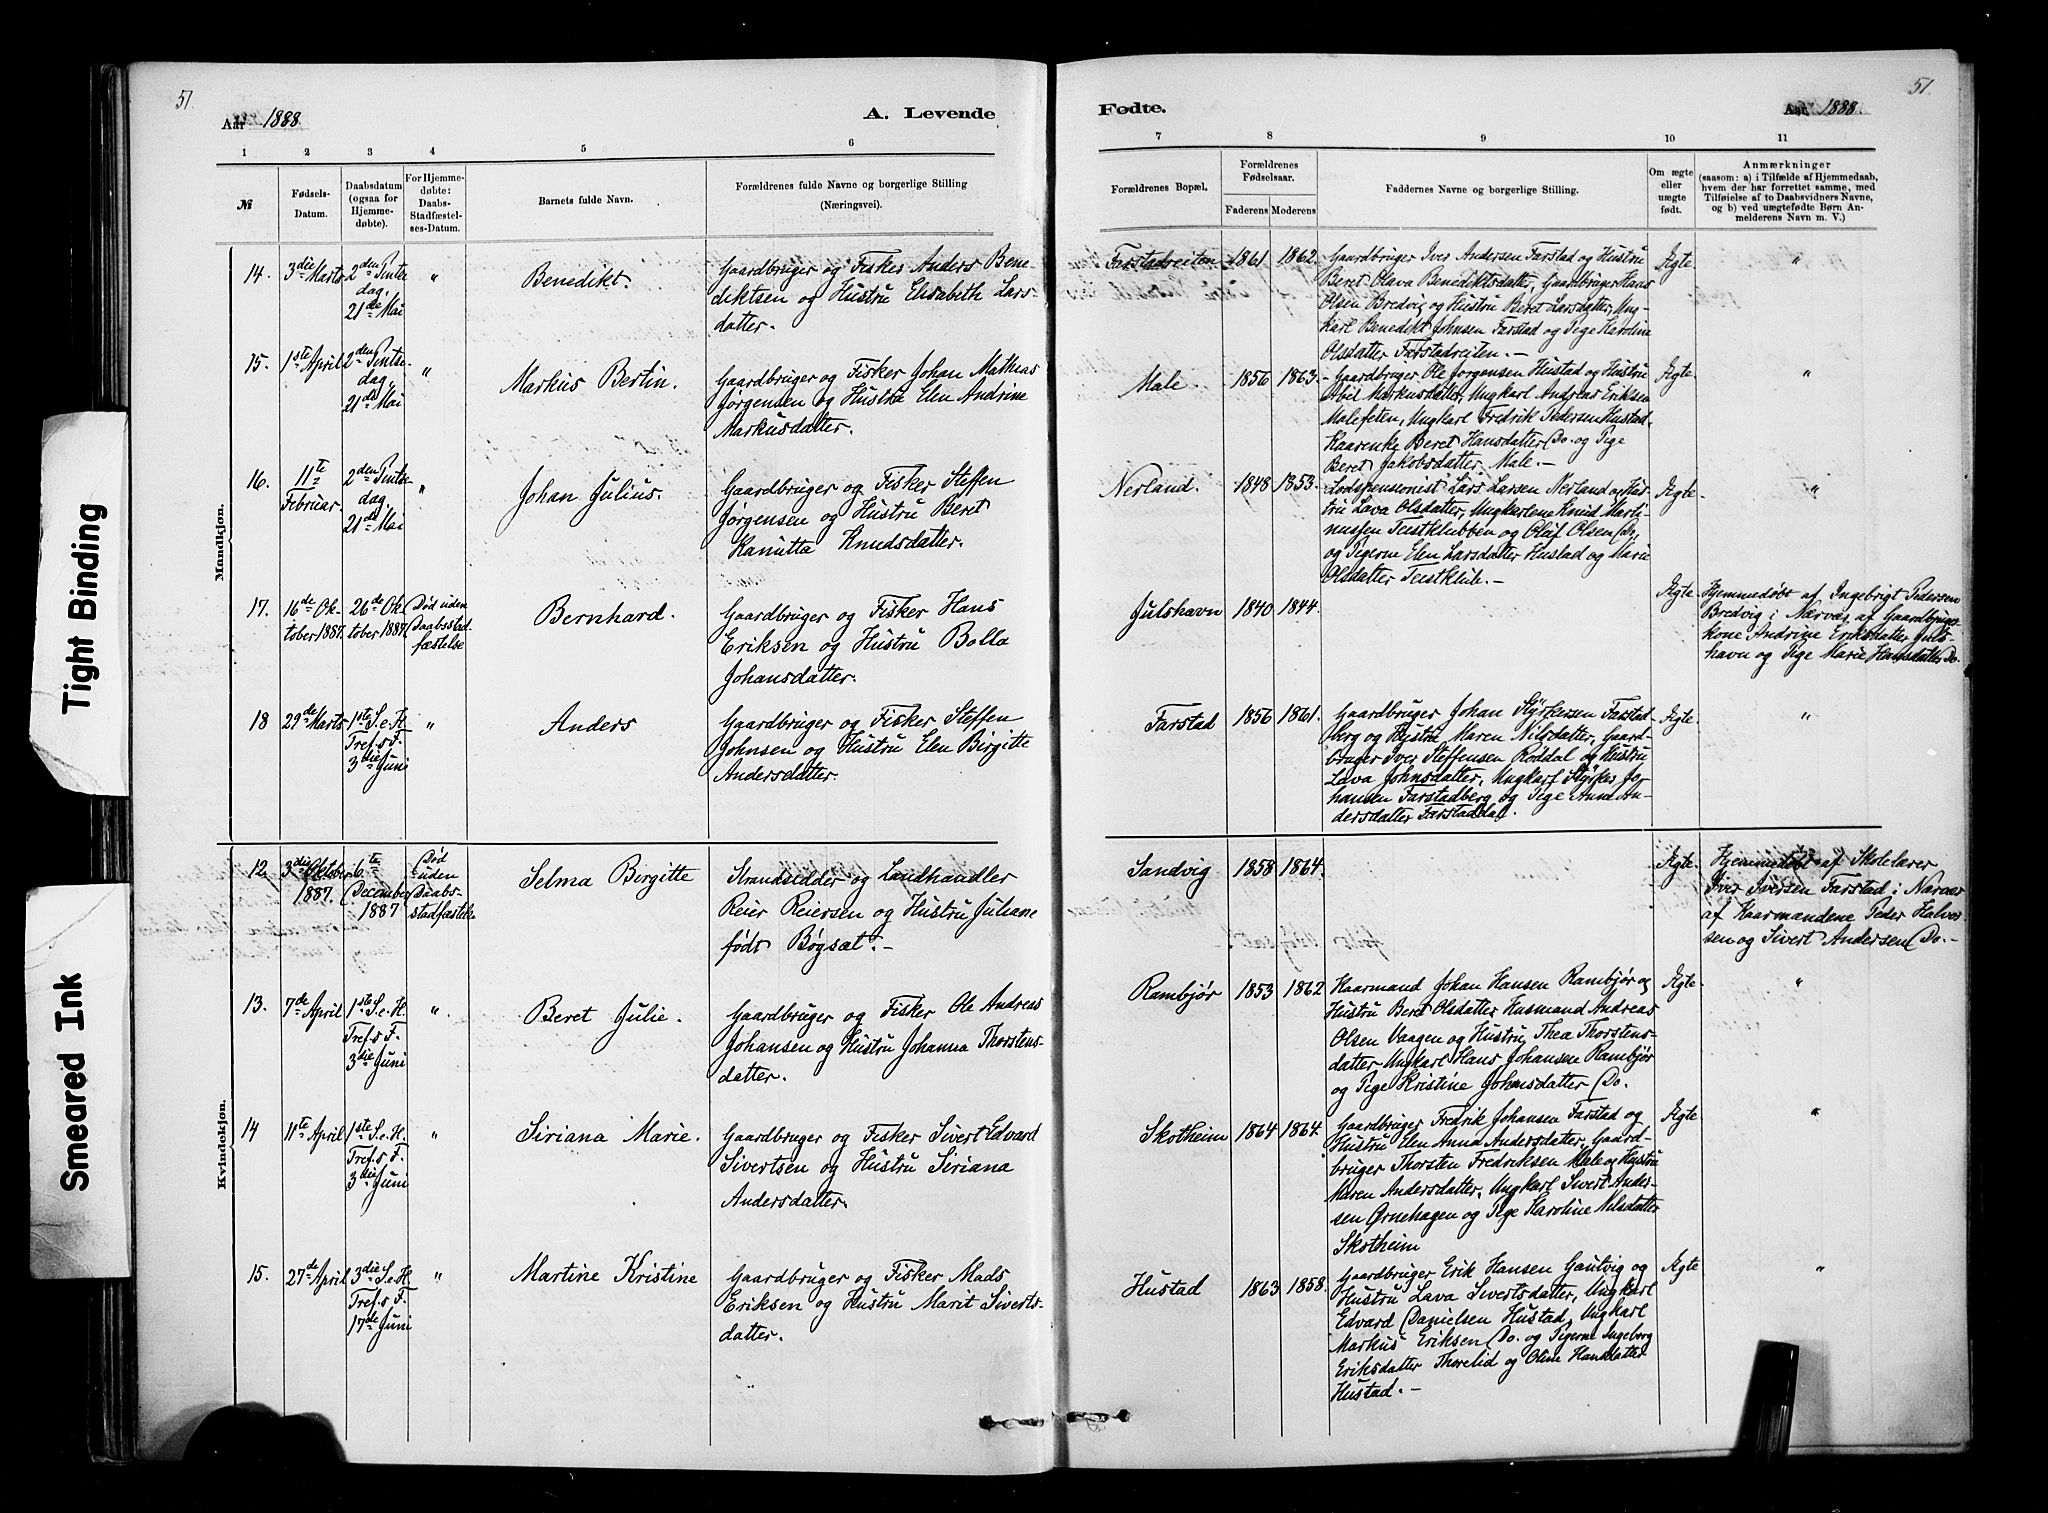 51.
Aar 1888.
A. Levende
1 2 3 4 5 6
№
Fødsels-
Datum.
Daabsdatum
(ogsaa for
Hjemme-
døbte).
For Hjemme-
døbte:
Daabs-
Stadfæstel-
ses-Datum.
Barnets fulde Navn.
Forældrenes fulde Navne og borgerlige Stilling
(Næringsvei).
Mandkjøn.
14. 3die Marts
2den Pintse
dag,
21de Mai
"
Benedikt.
Gaardbruger og Fisker Anders Bene-
diktsen og Hustru Elisabeth Lars-
datter.
15. 1ste April
2den Pintse
dag,
21de Mai
"
Markus Bertin.
Gaardbruger og Fisker Johan Mathias
Jørgensen og Hustru Elen Andrine
Markusdatter.
16. 11te
Februar.
2den Pintse
dag,
21de Mai
"
Johan Julius.
Gaardbruger og Fisker Steffen
Jørgensen og Hustru Beret
Kanutta Knudsdatter.
17. 16de Ok-
tober 1887.
26de Ok-
tober 1887.
Død uden
Daabsstad-
fæstelse
Bernhard.
Gaardbruger og Fisker Hans
Eriksen og Hustru Bolla
Johansdatter.
18 29de Marts
1ste S. e. H.
Tref. s F.
3die Juni
"
Anders
Gaardbruger og Fisker Steffen
Johnsen og Hustru Elen Birgitte
Andersdatter.
Kvindekjøn.
12. 3die Oktober
1887.
6te
December
1887
Død
uden
Daabs-
stadfæstelse
Selma Birgitte
Strandsidder og Landhandler
Reier Reiersen og Hustru Juliane
født Bøgsæt. -
13. 7de April
1ste S. e. H.
Tref. s F.
3die Juni
"
Beret Julie.
Gaardbruger og Fisker Ole Andreas
Johansen og Hustru Johanna Thorstens-
datter.
14 11te April
1ste S. e. H.
Tref. s F.
3die Juni
"
Siriana Marie.
Gaardbruger og Fisker Sivert Edvard
Sivertsen og Hustru Siriana
Andersdatter.
15. 27de April
3die S. e. H
Tref. s F.
17de Juni
"
Martine Kristine
Gaardbruger og Fisker Mads
Eriksen og Hustru Marit Siverts-
datter.
Fødte.
Aar 1888.
51.
7 8 9 10 11
Forældrenes Bopæl.
Forældrenes
Fødselsaar.
Faderens Moderens
Faddernes Navne og borgerlige Stilling.
Om ægte
eller
uægte
født.
Anmærkninger
(saasom: a) i Tilfælde af Hjemmedaab,
hvem der har forrettet samme, med
Tilføielse af to Daabsvidners Navne,
og b) ved uægtefødte Børn An-
melderens Navn m. V.)
Farstadreiten 1861 1862.
Gaardbruger Iver Andersen Farstad og Hustru
Beret Olava Benediktsdatter, Gaardbruger Hans
Olsen Bredvig og Hustru Beret Larsdatter, Ung-
karl Benedikt Johnsen Farstad og Pige Karolina
Olsdatter Farstadreiten. -
Ægte
"
Male. 1856 1863.
Gaardbruger Ole Jørgensen Hustad og Hustru
Abel Markusdatter, Ungkarl Andreas Eriksen
Malefeten, Ungkarl Fredrik Pedersen Hustad,
Kaarenke Beret Hansdatter Do. og Pige
Beret Jakobsdatter Male. -
Ægte
"
Nerland. 1848 1853.
Lodspensionist Lars Larsen Nerland og Hus-
tru Lava Olsdatter, Ungkarlene Knud Marti-
nussen Teistklubben og Oluf Olsen Do,
og Pigerne Elen Larsdatter Hustad og Marie
Olsdatter Teistklub. -
Ægte
"
Julshavn 1840 1844.
Ægte
Hjemmedøbt af Ingebrigt Pedersen
Bredvig i Nærvær af Gaardbruger-
kone Andrine Eriksdatter Juls-
havn og Pige Marie Hansdatter Do.
Farstad 1856 1861.
Gaardbruger Johan Styrkersen Farstad-
berg og Hustru Maren Nilsdatter, Gaard-
bruger Iver Steffensen Røddal og Hustru
Lava Johnsdatter, Ungkarl Styrker Jo-
hansen Farstadberg og Pige Anne An-
dersdatter Farstaddal.
Ægte
"
Sandvig 1858 1864.
Ægte
Hjemmedøbt af Skolelærer
Iver Iversen Farstad i Nærvær
af Kaarmændene Peder Halvor-
sen og Sivert Andersen Do. -
Rambjør 1853 1862
Kaarmand Johan Hansen Rambjør og
Hustru Beret Olsdatter Husmand Andreas
Olsen Vaagen og Hustru Thea Thorstens-
datter Ungkarl Hans Johansen Rambjør
og Pige Kristine Johnsdatter Do.
Ægte
"
Skotheim 1864 1864.
Gaardbruger Fredrik Johansen Farstad og
Hustru Elen Anna Andersdatter, Gaard-
bruger Thorsten Fredriksen Male og Hustru
Maren Andersdatter, Ungkarl Sivert Ander-
sen Ørnehagen og Pige Karoline Nilsdatter
Skotheim
Ægte
"
Hustad 1863 1858.
Gaardbruger Erik Hansen Gaulvig og
Hustru Lava Sivertsdatter, Ungkarl
Edvard Danielsen Hustad, Ungkarl
Markus Eriksen Do. og Pigerne Ingeborg
Eriksdatter Thorelid og Oline Hansdatter
Hustad. -
Ægte
"
Tight Binding
Smeared Ink